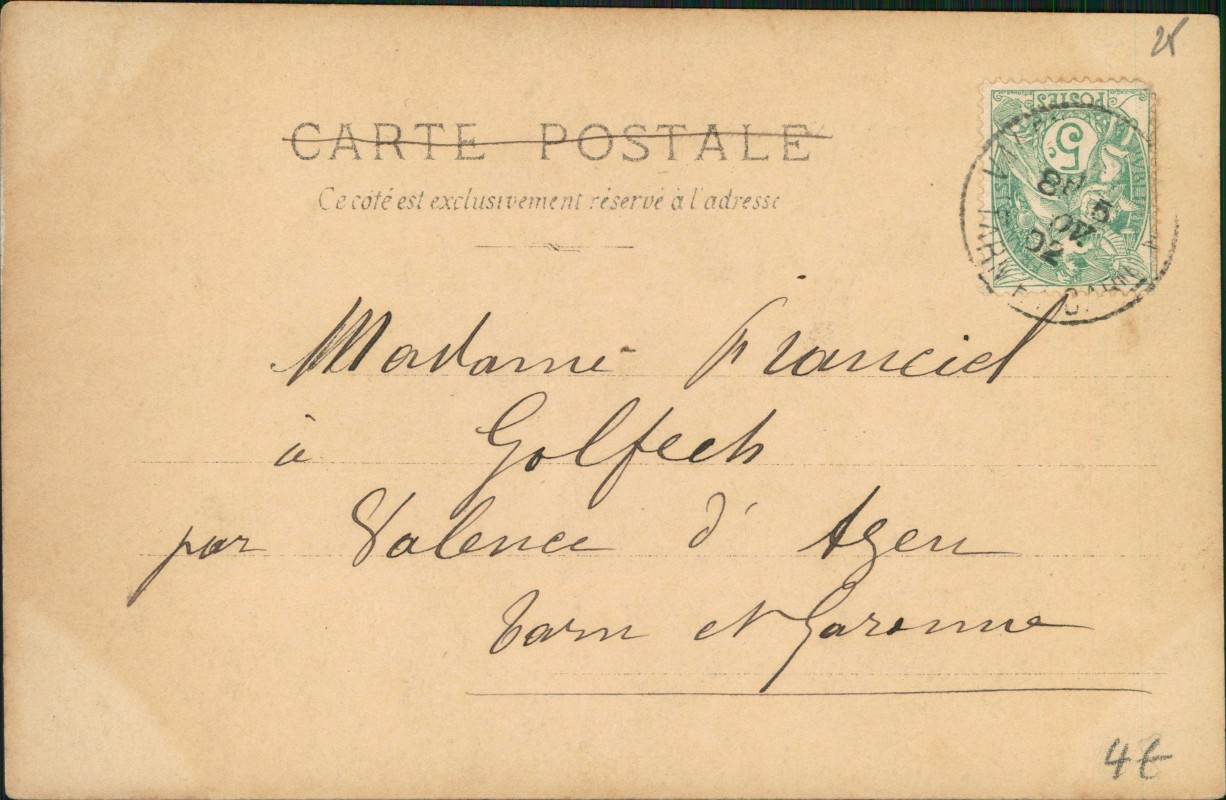 25
CARTE POSTALE
Ce côté est exclusivement réservé à l'adresse
POSTES
5
8
5
02
Madame Franciel
à Golfech
par Valence d'Agen
Tarn et Garonne
4€